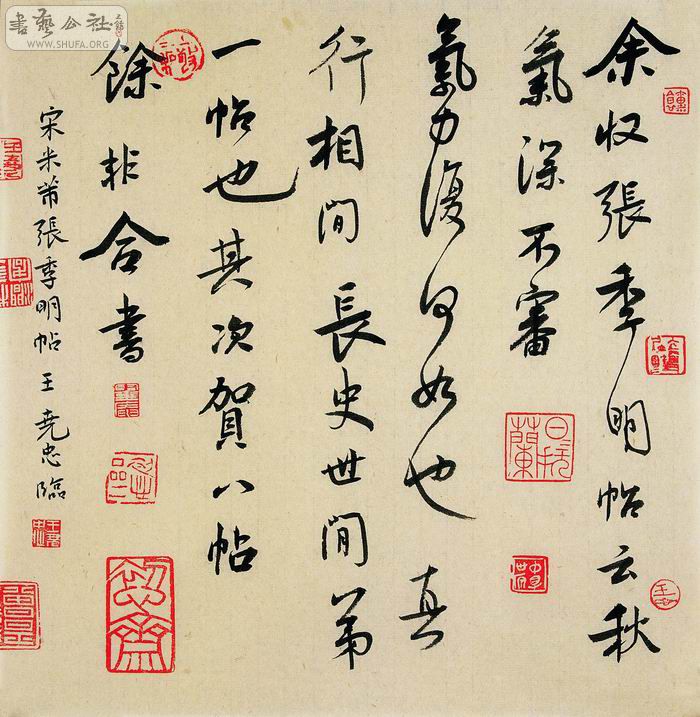 余收張季明帖云秋
氣深不審
氣力復何如也真
行相間長史世間第
一帖也其次賀八帖
餘非合書
宋米芾張季明帖王堯忠臨
書藝公社
WWW.SHUFA.ORG